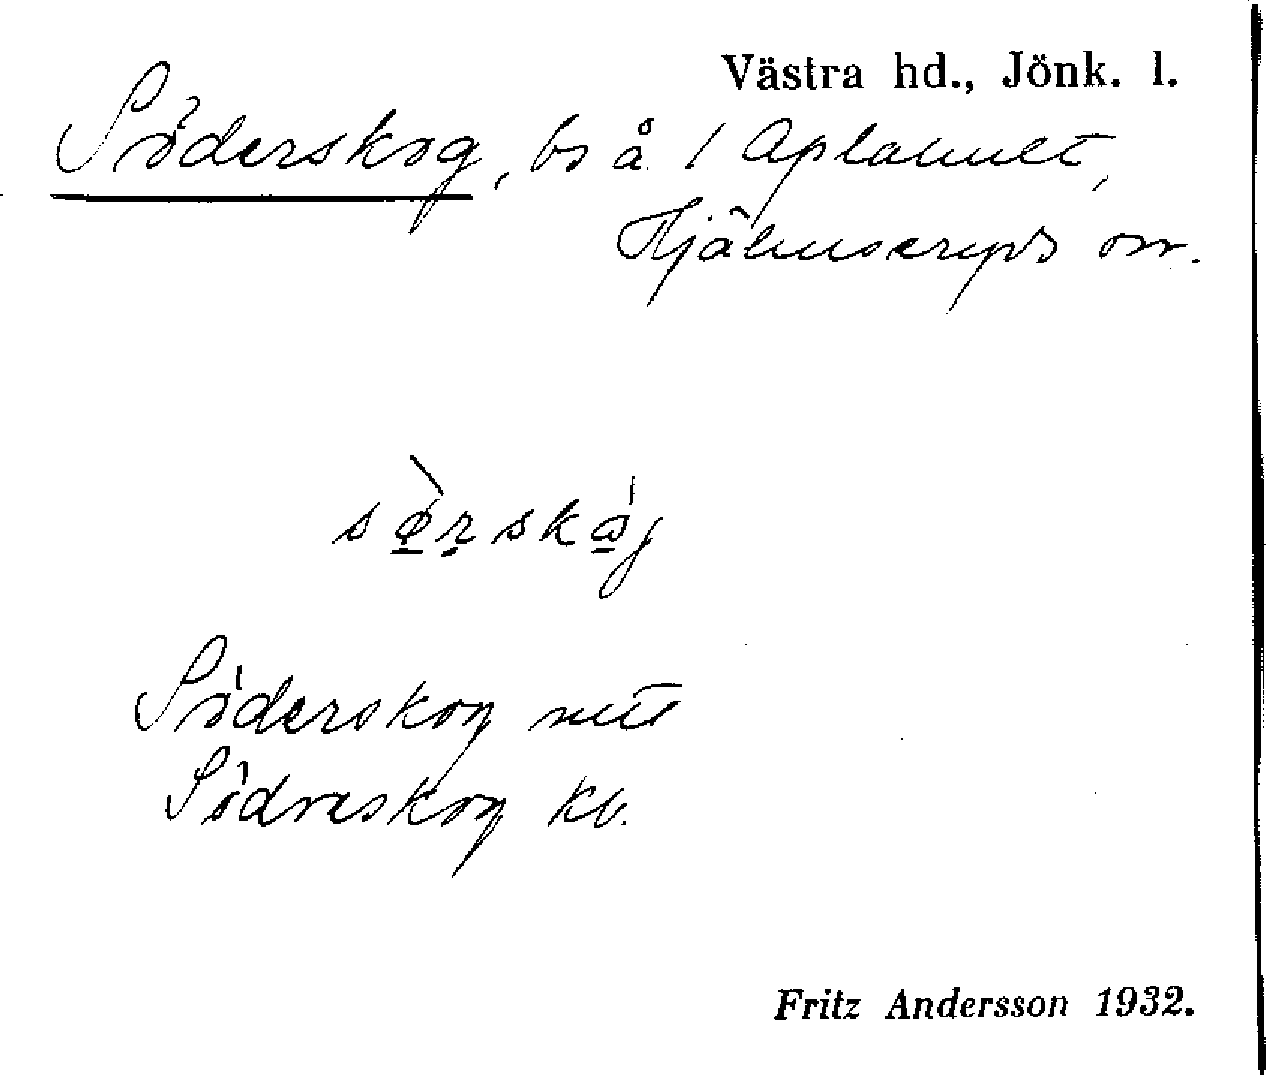 Västra hd., Jönk. l.
Söderskog, bs å 1 Aplahult,
Hjälmseryds sn.
Söderskog
Södraskog kb.
Fritz Andersson 1932.